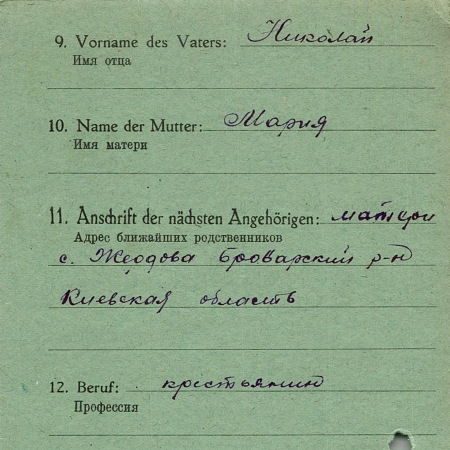 9. Vorname des Vaters: Николай
Имя отца
10. Name der Mutter: Мария
Имя матери
11. Anschrift der nächsten Angehörigen: матери
Адрес ближайших родственников
с. Жердова Броварский р-н
Киевская область
12. Beruf: крестьянин
Профессия